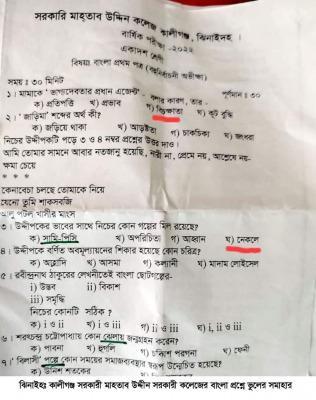 সরকারি মাহ্‌তাব উদ্দিন কলেজ কালীগঞ্জ, ঝিনাইদহ ।
বার্ষিক পরীক্ষা -২০২২
একাদশ শ্রেণী
বিষয়ঃ বাংলা প্রথম পত্র (বহুনির্বাচনী অভীক্ষা)
সময় ঃ ৩০ মিনিট
পূর্ণমান ঃ ৩০
১ । মামাকে 'ভাগ্যদেবতার প্রধান এজেন্ট' - বলার কারণ, তার -
ক) প্রতিপত্তি খ) প্রভাব গ) বিচক্ষতা ঘ) কূট বুদ্ধি
২ । 'জাড়িমা' শব্দের অর্থ কী?
ক) জড়িয়ে থাকা খ) আড়ষ্টতা গ) চাকচিক্য ঘ)
নিচের উদ্দীপকটি পড়ে ৩ ও ৪ নম্বর প্রশ্নের উত্তর দাও।
আমি তোমার সামনে আবার নতজানু হয়েছি, নারী না, প্রেমে নয়, আশ্লেষে নয়-
ক্ষমা চেয়ে
* * *
কেনাবেচা চলছে তোমাকে নিয়ে
যেনো তুমি শাকসবজি
আলু পটল খাসীর মাংস
৩ । উদ্দীপকের ভাবের সাথে নিচের কোন গল্পের মিল রয়েছে?
ক) সামি-পিসি খ) অপরিচিতা গ) আহ্বান ঘ) নেকলে
৪ । উদ্দীপকে বর্ণিত অবমূল্যায়নের শিকার হয়েছে কোন চরিত্র?
ক) আহ্লাদি খ) আসমা গ) কল্যানী ঘ) মাদাম লোইসেল
৫ । রবীন্দ্রনাথ ঠাকুরের লেখনীতেই বাংলা ছোটগল্পের-
i) উদ্ভব ii) বিকাশ
iii) সমৃদ্ধি
নিচের কোনটি সঠিক ?
ক) i ও ii খ) i ও iii গ) ii ও iii ঘ) i, ii ও iii
৬ । শরৎচন্দ্র চট্টোপাধ্যায় কোন জেলায় জন্মগ্রহন করেন?
ক) পাবনা খ) হুগলি গ) চব্বিশ পরগনা ঘ) ফেনী
৭ । 'বিলাসী' গল্পে কোন সময়ের সমাজব্যবস্থার স্বরূপ উম্মোচিত হয়েছে?
ক) উনিশ শতকের
ঝিনাইহ্য কালীগঞ্জ সরকারী মাহতাব উদ্দীন সরকারী কলেজের বাংলা প্রশ্নে ভুলের সমাহার